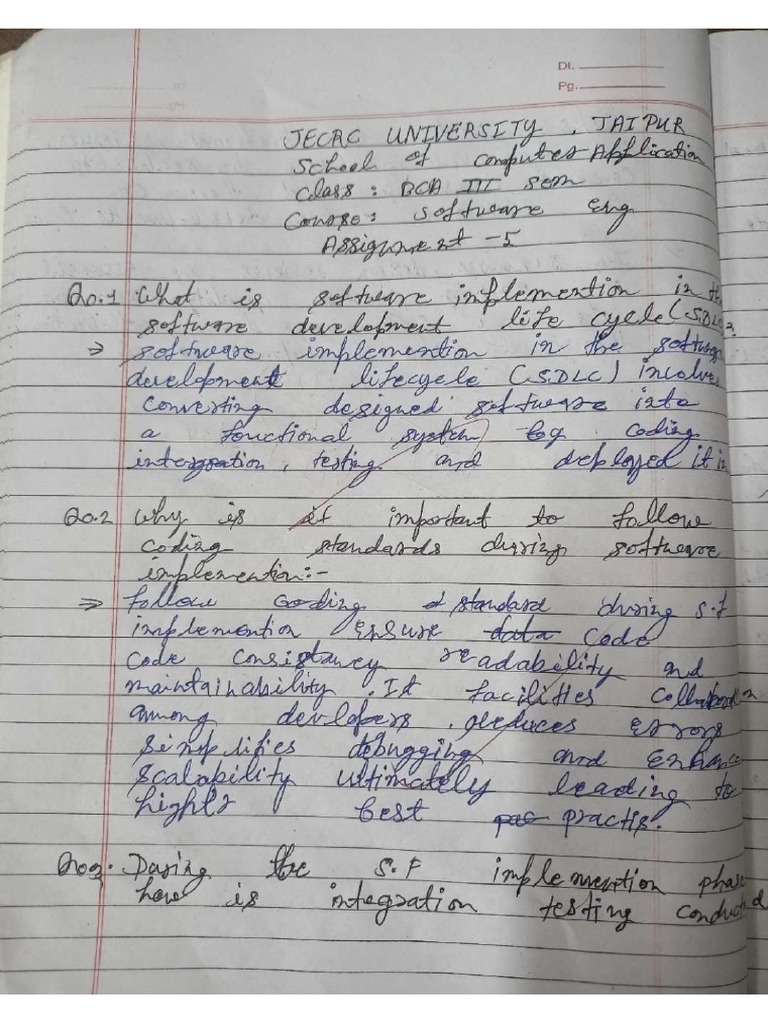 Dt.
Pg.
JECRC UNIVERSITY, JAIPUR
School of Computer Application
Class : BCA III sem
Course: Software Eng
Assignment -5
Qo.1 What is software implemention in the
software development life cycle (SDLC)?
⇒ software implemention in the software
development lifecycle (SDLC) involves
converting designed software into
a functional system by coding
intergration, testing and deployed it in
Qo.2 Why is it important to follow
coding standards during software
implemention:-
⇒ follow coding standard during s.f
implemention ensure data code
code consistancy readability and
maintainability. It facilities collaboration
among developers, reduces errors
simplifies debugging and enhance
scalability ultimately leading to
highly best practis.
Qo3. During the S.F implemention phase
how is integration testing conducted